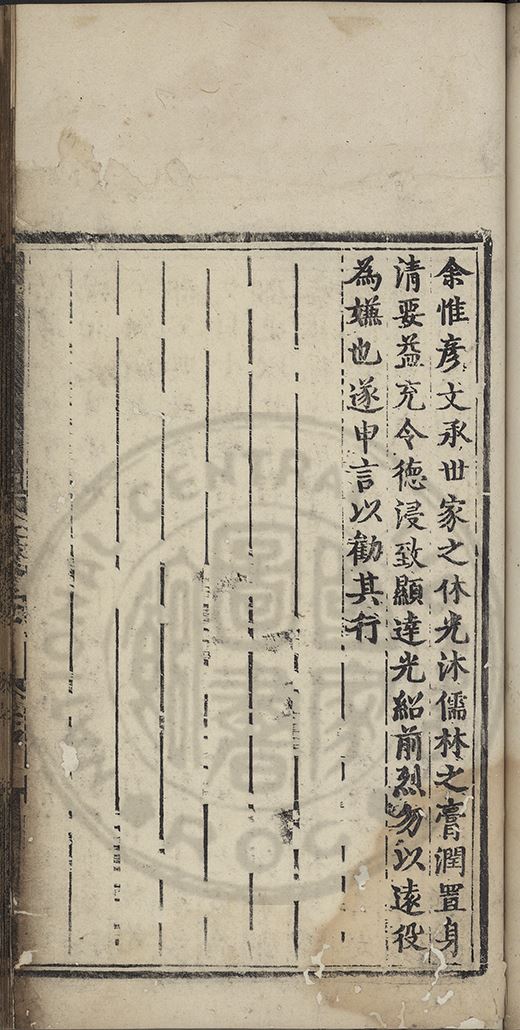 余惟彥文承世家之休光沐儒林之膏潤置身
清要益充令德浸致顯達光紹前烈勿以遠役
為嫌也遂申言以勸其行